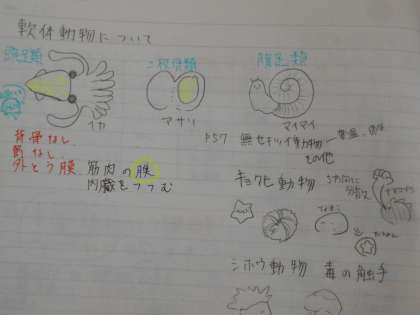 軟体動物について
頭足類
二枚貝類
腹足類
イカ
アサリ
マイマイ
背骨なし、
節なし、
外とう膜、筋肉の膜
内臓をつつむ
P57 無セキツイ動物
その他
キョクヒ動物
なまこ
シホウ動物 毒の触手